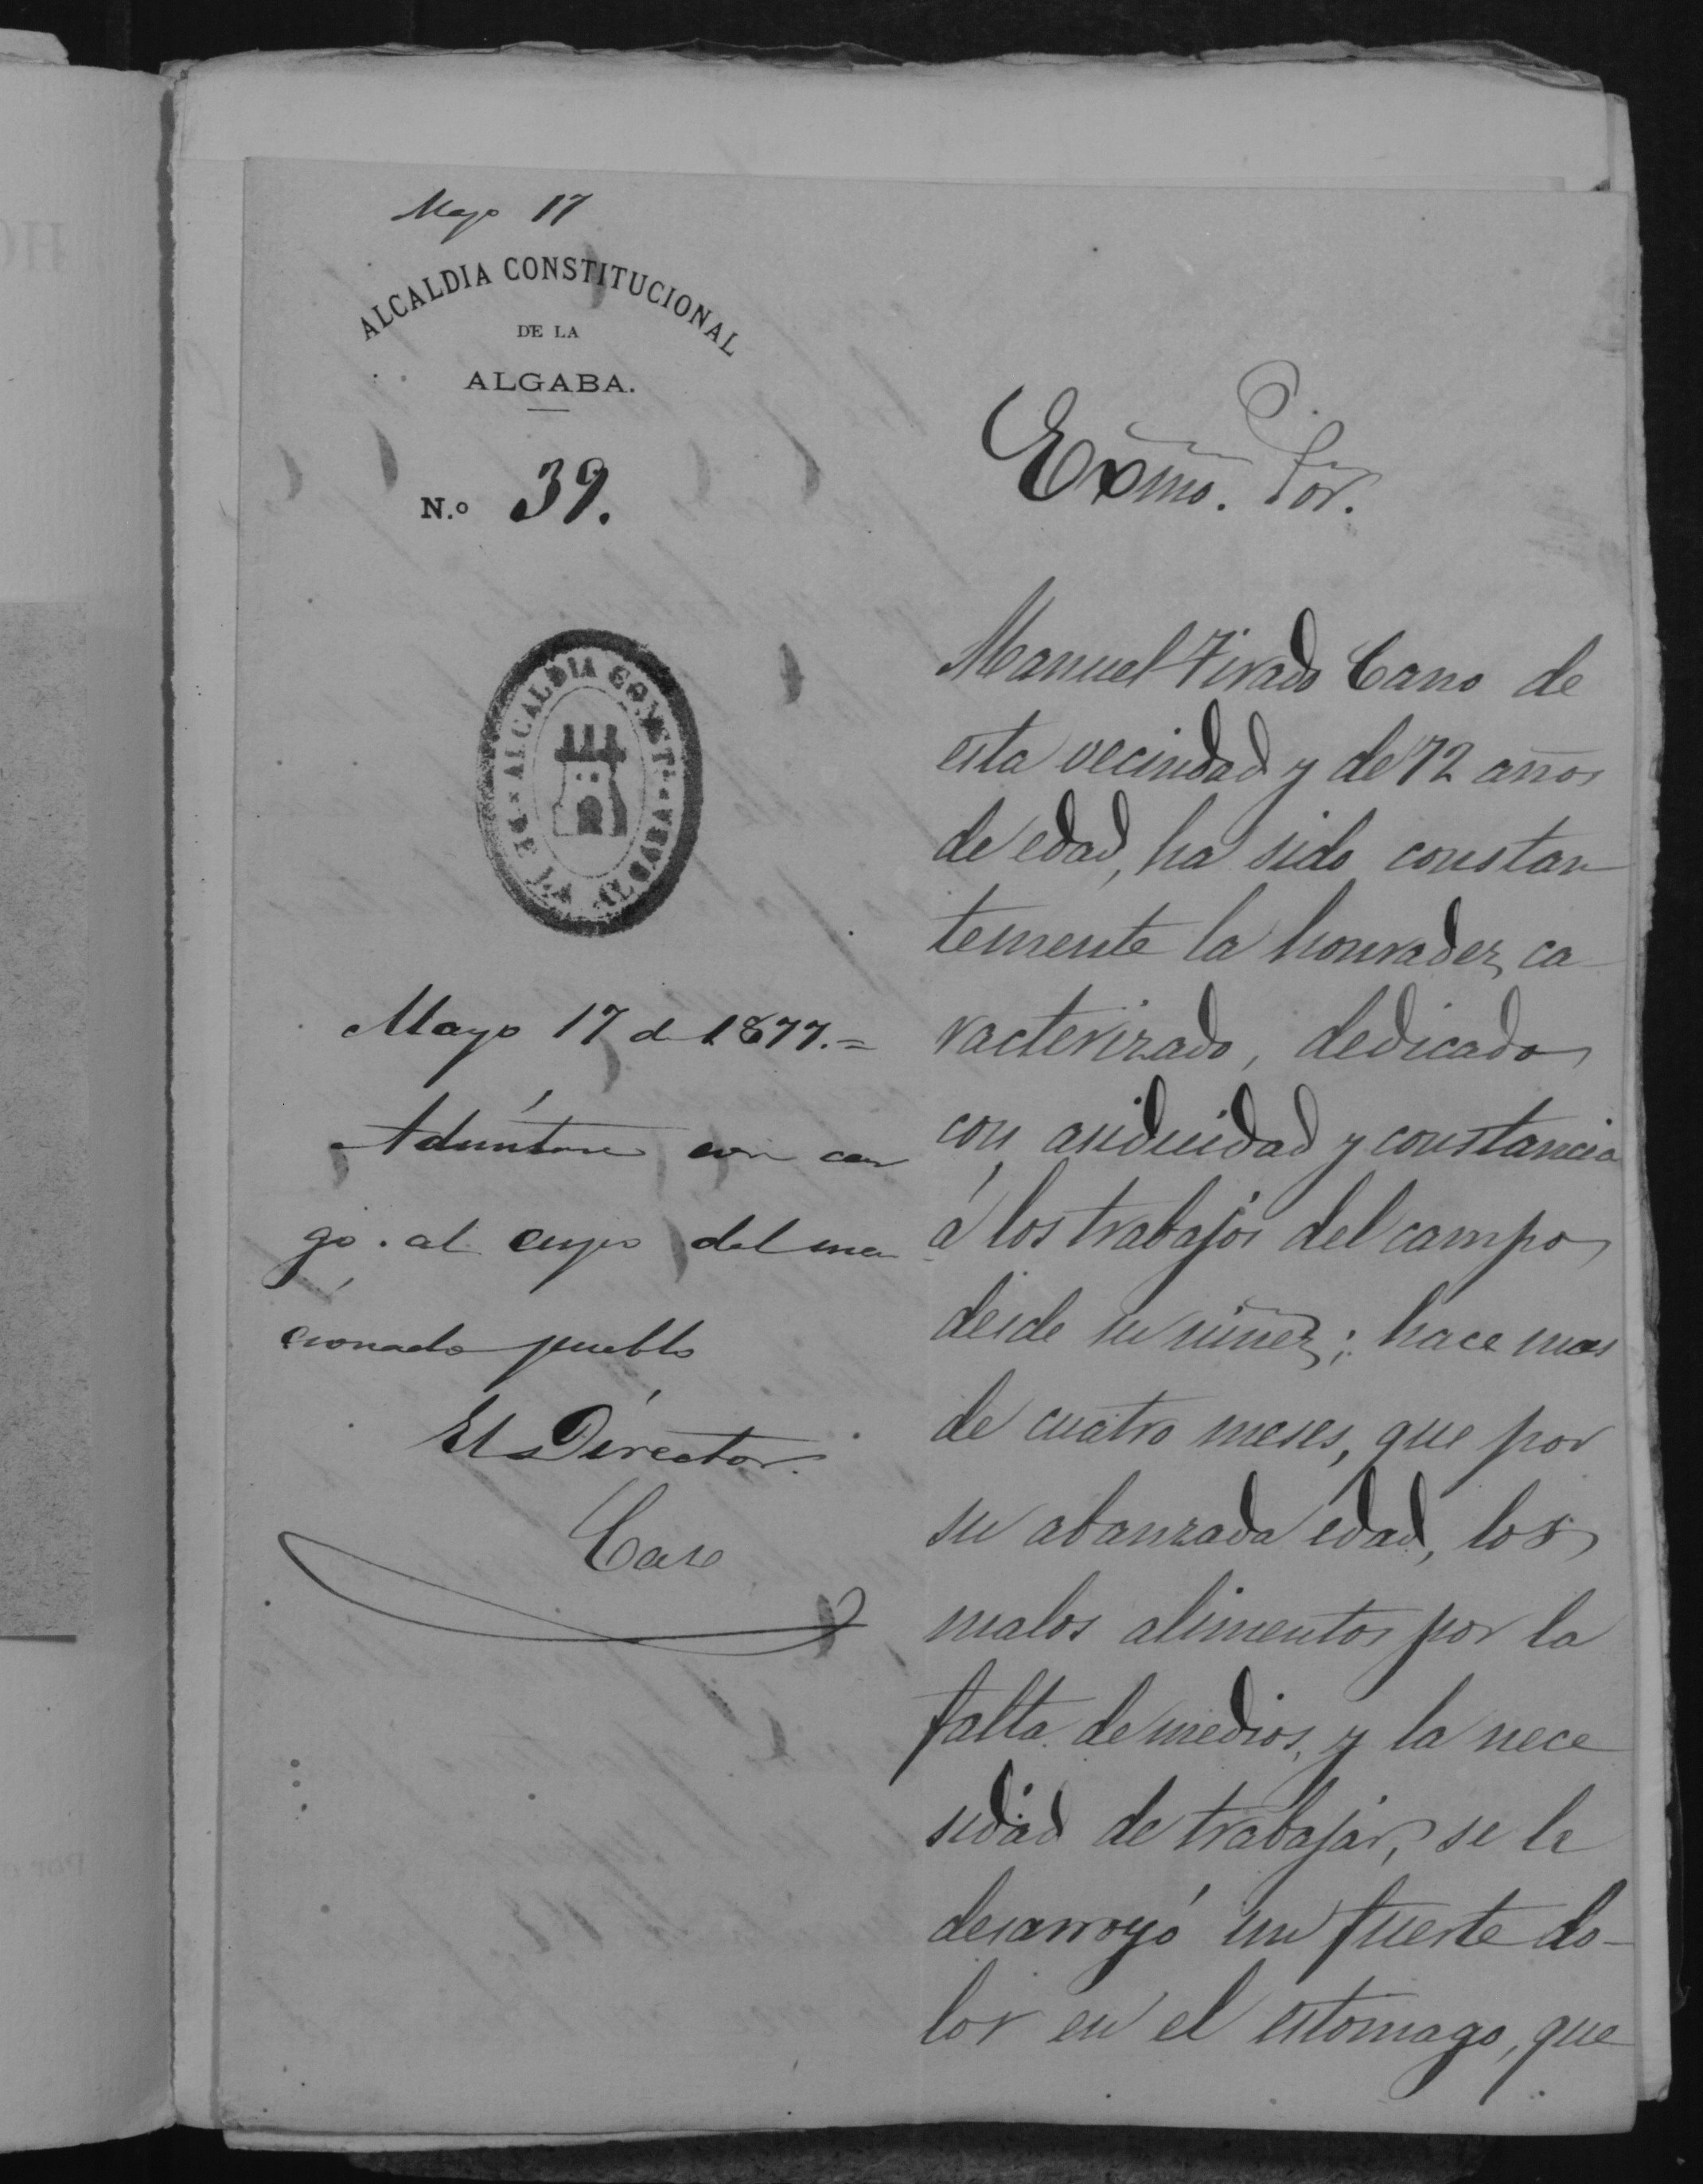 Mayo 17
ALCALDIA CONSTITUCIONAL
DE LA
ALGABA.
N.o 39.
ALCALDIA CONST. DE LA ALGABA
Mayo 17 de 1877.=
Admítase con car
go al cupo del men
cionado pueblo
El Director
Caro
Exmo. Sor.
Manuel Tirado Cano de
esta vecindad y de 72 años
de edad, ha sido constan
temente la honradez ca
racterizado, dedicado
con asiduidad y constancia
á los trabajos del campo
desde su niñez; hace mas
de cuatro meses, que por
su abanzada edad, los
malos alimentos por la
falta de medios, y la nece
sidad de trabajar, se le
desarroyó un fuerte do-
lor en el estomago, que